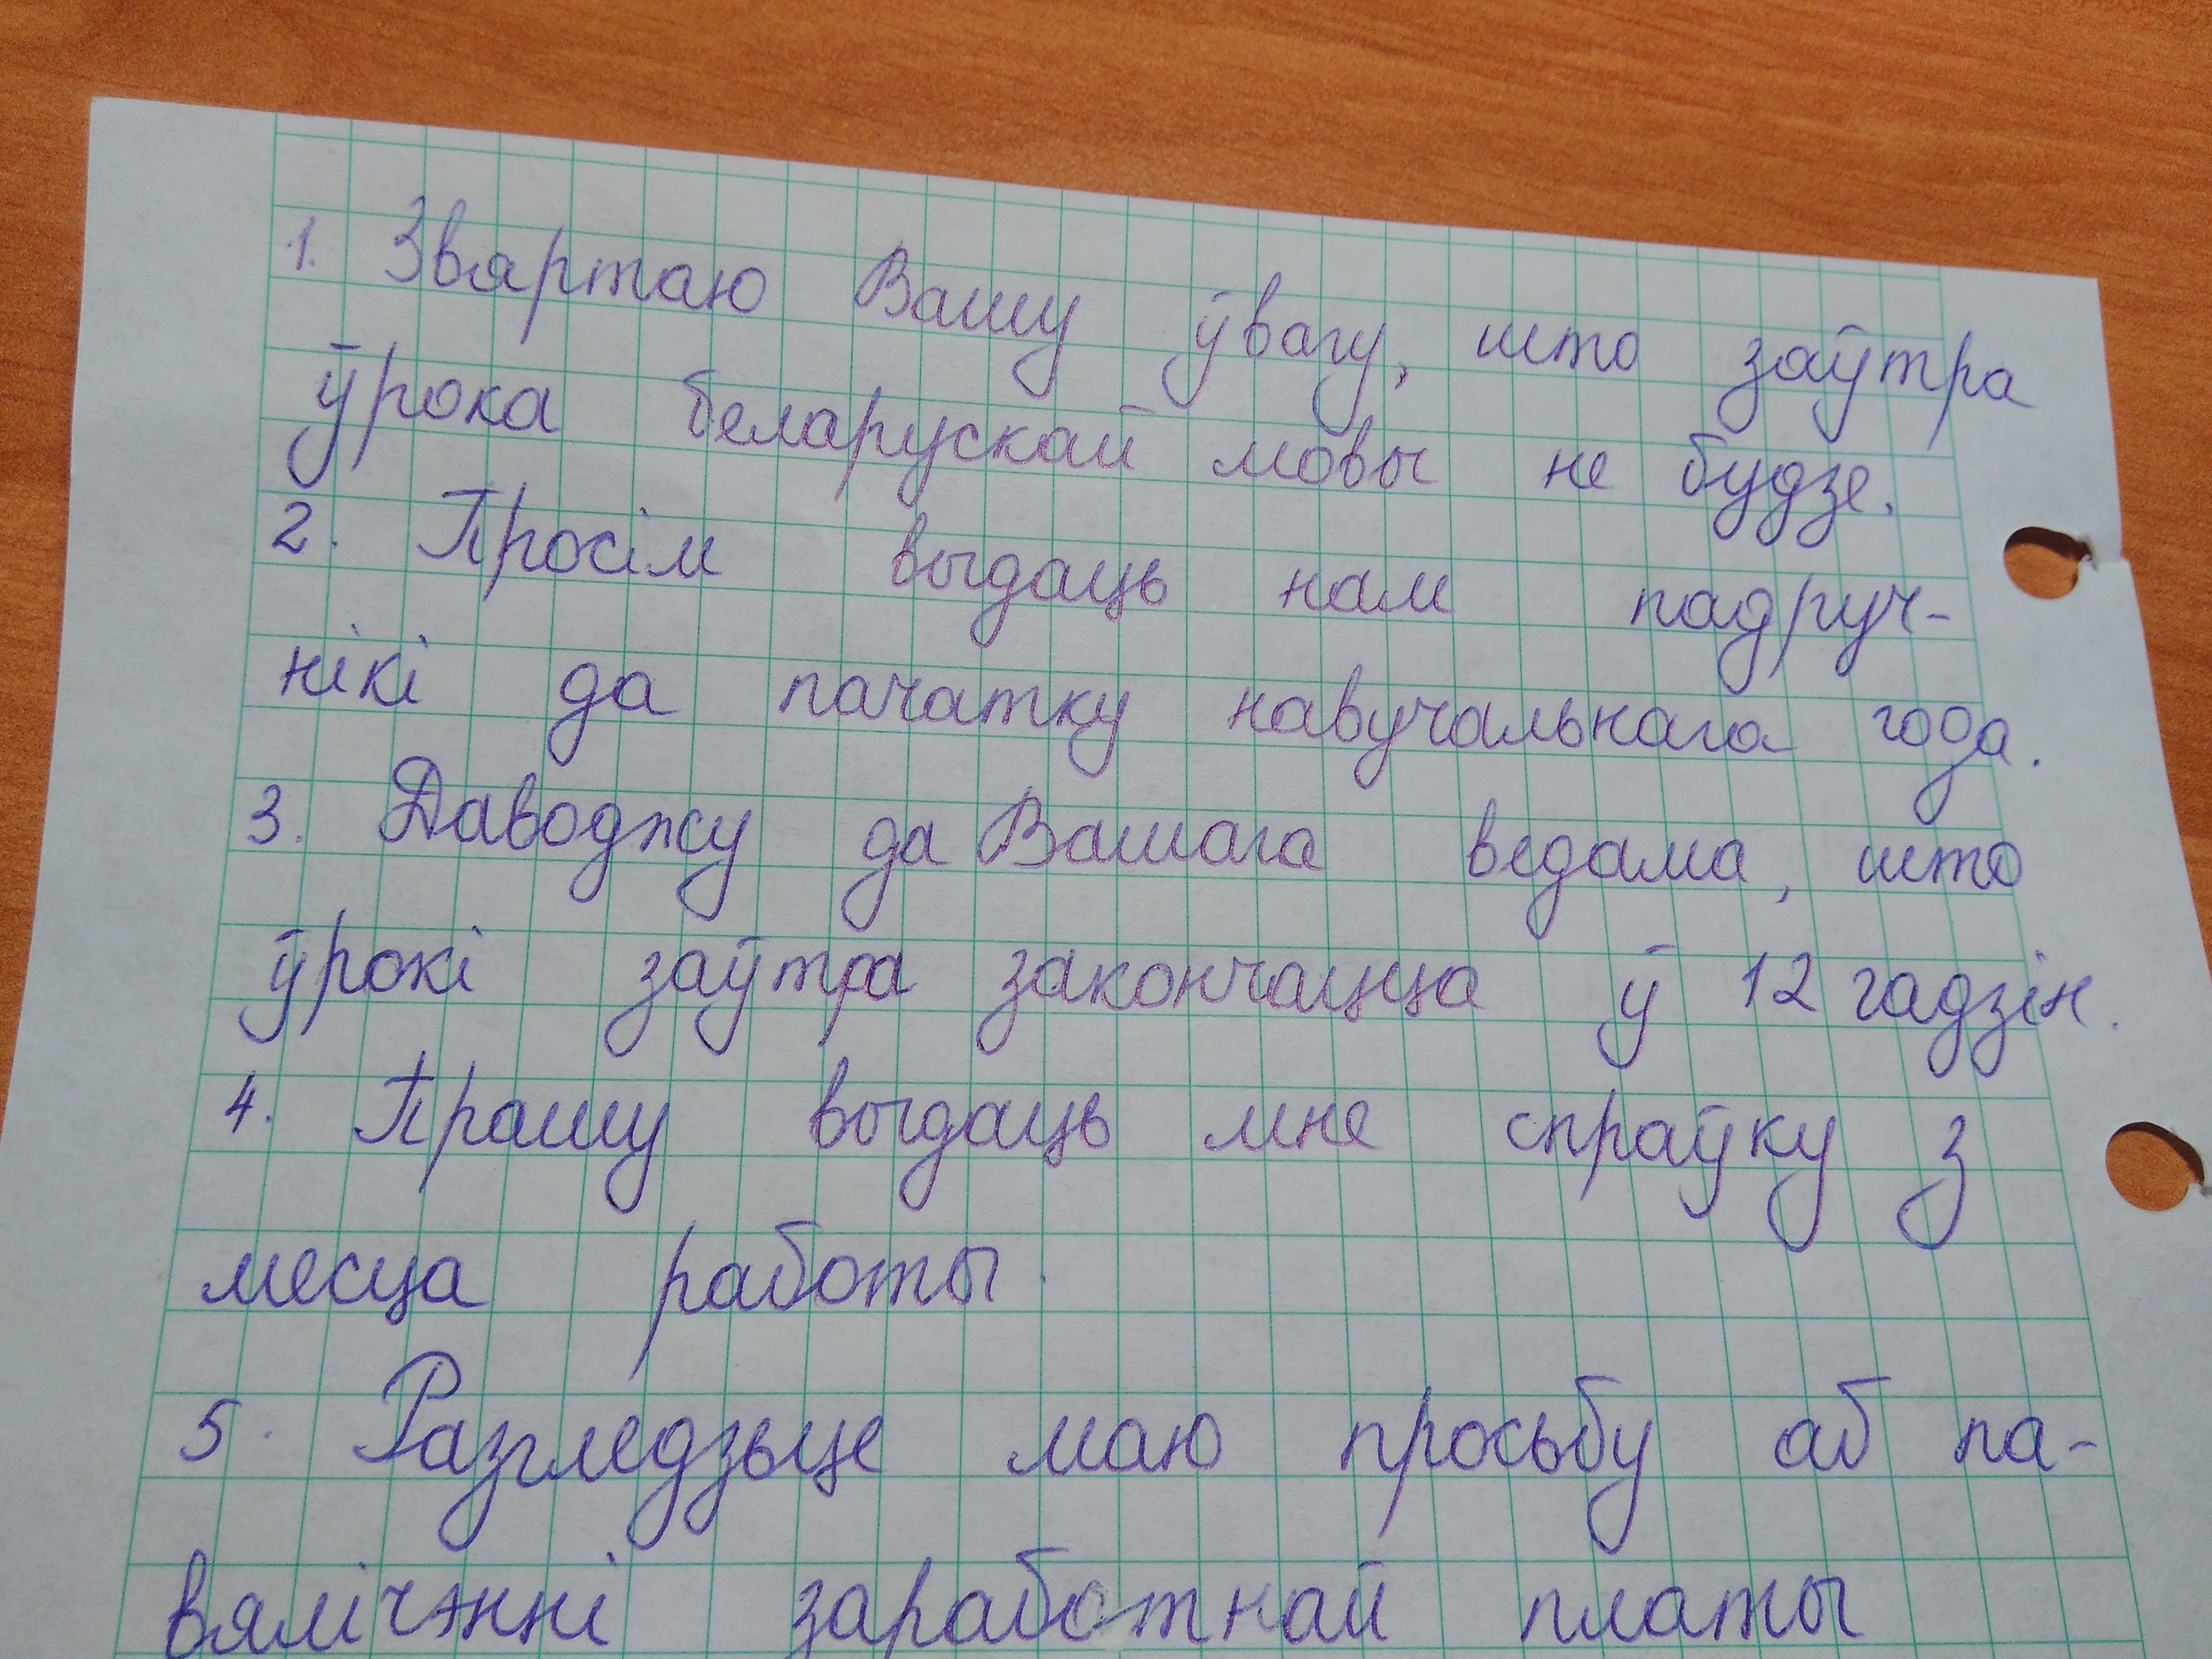 1. Звяртаю Вашу ўвагу, што заўтра
ўрока беларускай мовы не будзе.
2. Просім выдаць нам падруч-
нікі да пачатку навучальнага года.
3. Даводжу да Вашага ведама, што
ўрокі заўтра закончацца ў 12 гадзін.
4. Прашу выдаць мне спраўку з
месца работы.
5. Разгледзьце маю просьбу аб па-
вялічэнні заработнай платы